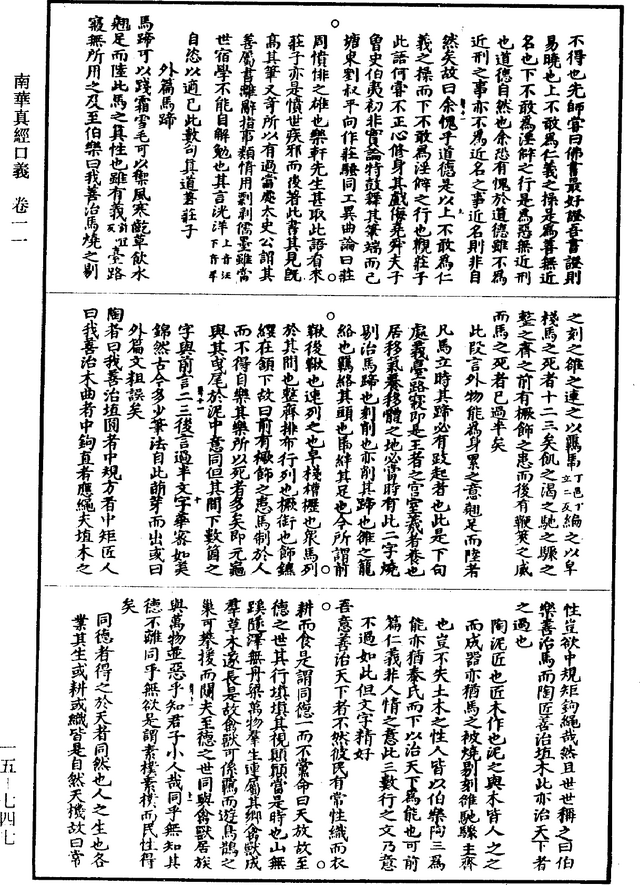 不得也先師嘗曰佛書最好證吾書證則
易曉也上不敢為仁義之操是為善無近
名也下不敢為淫僻之行是為惡無近刑
也道德自然也余恐有愧於道德雖不為
近刑之事亦不為近名之事近名則非自
然矣故曰余愧乎道德是以上不敢為仁
義之操而下不敢為淫僻之行也觀莊子
此語何嘗不正心修身其戲侮堯舜夫子
曾史伯夷初非實論特鼓舞其筆端而已
塘東劉叔平向作莊騷同工異曲論曰莊
周憤悱之雄也樂軒先生甚取此語看來
莊子亦是憤世疾邪而後著此書其見既
高其筆又奇所以有過當處太史公謂其
善屬書離辭指事類情用剽剝儒墨雖當
世宿學不能自解勉也其言洸洋上音汪下音羊
自恣以適己此數句真道著莊子
外篇馬蹄
馬蹄可以踐霜雪毛可以禦風寒齕草飲水
翹足而陸此馬之真性也雖有義臺路
寢無所用之及至伯樂曰我善治馬燒之剔
之刻之雒之連之以羈馽丁邑丁立二反編之以皁
棧馬之死者十二三矣飢之渴之馳之驟之
整之齊之前有橛飾之患而後有鞭筴之威
而馬之死者已過半矣
此段言外物能為身累之意翹足而陸者
凡馬立時其蹄必有跂起者也此是下句
處義臺路寢即是王者之宮室義者養也
居移氣養移體之地必當時有此二字燒
剔治馬蹄也刻削也亦削其蹄也雒之籠
絡也羈絡其頭也馽絆其足也今所謂前
鞦後鞦也連列之也皁棧槽櫪也眾馬列
於其間也整齊排布行列也橛銜也飾鑣
纓在頷下故曰前有橛飾之患馬制於人
而不得自樂其樂所以死者多矣即元龜
與其曳尾於泥中意同但其間下數箇之
字與前言二三後言過半文字華密如美
錦然古今多少筆法自此萌芽而出或曰
外篇文粗誤矣
陶者曰我善治埴圓者中規方者中矩匠人
曰我善治木曲者中鉤直者應繩夫埴木之
性豈欲中規矩鉤繩哉然且世世稱之曰伯
樂善治馬而陶匠善治埴木此亦治天下者
之過也
陶泥匠也匠木作也泥之與木皆人之之
而成器亦猶馬之被燒剔刻雒馳驟主齊
也豈不失土木之性人皆以伯樂陶三為
能亦猶泰氏而下以治天下為能也可前
篇仁義非人情之意此三數行之文乃意
不過如此但文字精好
吾意善治天下者不然彼民有常性織而衣
耕而食是謂同德一而不黨命曰天放故至
德之世其行填填其視顛顛當是時也山無
蹊隧澤無舟梁萬物羣生連屬其鄉禽獸成
羣草木遂長是故禽獸可係羈而遊鳥鵲之
巢可攀援而闚夫至德之世同與禽獸居族
與萬物並惡乎知君子小人哉同乎無知其
德不離同乎無欲是謂素樸素樸而民性得
矣
同德者得之於天者同然也人之生也各
業其生或耕或織皆是自然天機故曰常
南華真經口義 卷一一
一五-七四七